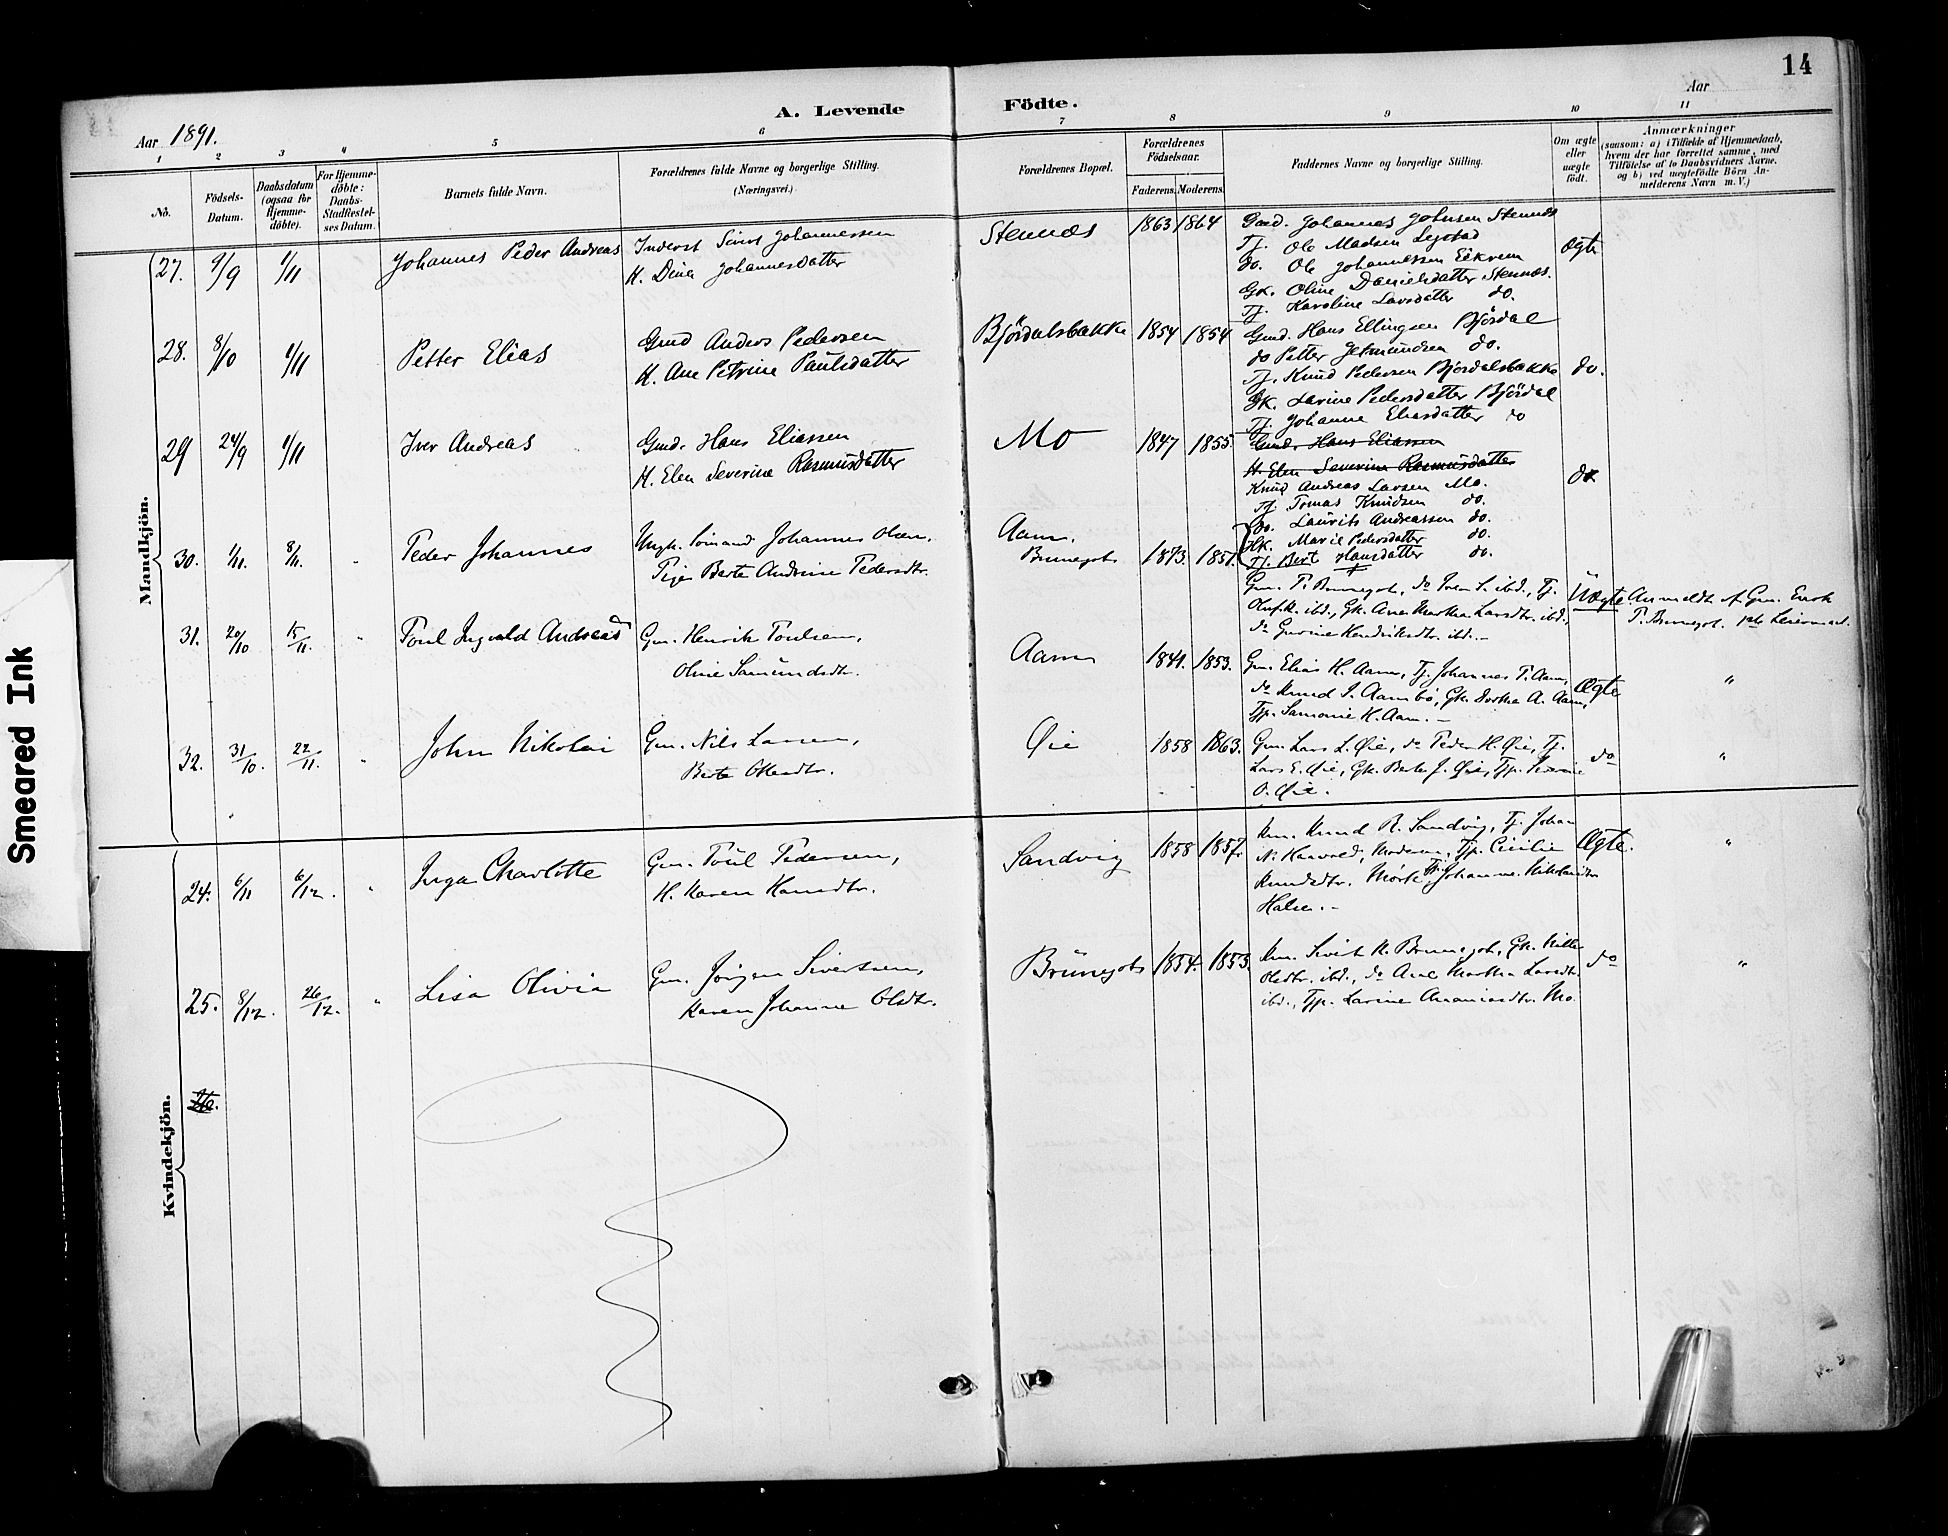 14
A. Levende Födte.
Aar 1891.
Aar
1 2 3 4 5 6 7 8 9 10 11
No.
Födsels-Datum.
Daabsdatum (ogsaa for Hjemme-döbte).
For Hjemme-döbte: Daabs-Stadfæstel-ses Datum.
Barnets fulde Navn.
Forældrenes fulde Navne og borgerlige Stilling.
(Næringsvei.)
Forældrenes Bopæl.
Forældrenes Födselsaar.
Faderens. Moderens.
Faddernes Navne og borgerlige Stilling.
Om ægte eller uægte födt.
Anmærkninger
(saasom: a) i Tilfælde af Hjemmedaab, hvem der har forrettet samme, med Tilföielse af to Daabsvidners Navne. og b) ved uægtefödte Börn Anmelderens Navn m. V.)
Mandkjön.
27. 9/9 1/11 Johannes Peder Andreas
Inderst Sivert Johannessen
H. Dina Johannesdatter
Stennæs 1863 1864
Gmd. Johannes Johnsen Stennæs
Tj. Ole Madsen
do. Ole Johannessen Eikrem
Gk. Oline Danielsdatter Stennæs.
Tj. Karoline Larsdatter do.
Ægte
28. 8/10 1/11 Petter Elias
Gmd Anders Pedersen
H. Ane Petrine Paulsdatter
Björdalsbakke 1854 1854
Gmd. Hans Ellingsen Björdal
do Petter Jetmundsen do.
Tj. Knud Pedersen Björdalsbakke
Gk. Larine Pedersdatter Björdal
Tj. Johanne Eliasdatter do
do.
29 24/9 1/11 Iver Andreas
Gmd. Hans Eliassen
H. Elen Severine Rasmusdatter
Mo 1847 1855.
Gmd. Hans Eliassen
H. Elen Severine Rasmusdatter
Knud Andreas Larsen Mo.
Tj Tomas Knudsen do.
do. Laurits Andreassen do.
Hk. Marie Pedersdatter do.
Tj. Bert Hansdatter do.
do
30. 1/11. 8/11. Peder Johannes
Ungk. Sömand Johannes Olsen,
Pige Berte Andrine Pedersdtr.
Aam.
Brunegot 1873. 1851.
Gm. P. Brunegot, do Iver S. ibd., Tj.
Oluf K. ibd., Gk. Ane Martha Larsdtr. ibd.,
do Gurine Hendriksdtr. ibd.
Uægte. Anmeldt af Gm. Enok
P. Brunegot. 1ste Leiermaal.
31. 20/10 15/11. Poul Ingvald Andreas
Gm. Henrik Poulsen,
Oline Samundsdtr.
Aam 1841. 1853.
Gm. Elias H. Aam, Tj. Johannes P. Aam,
do Knud I. Aambö, Gk. Dorthea A. Aam,
Tjp. Samonie K. Aam.
Ægte "
32. 31/10. 22/11. John Nikolai
Gm. Nils Larsen,
Berte Olsendtr.
Øie 1858 1863.
Gm. Lars L. Øie, do Peder H. Øie, Tj.
Lars E. Øie, Gk. Berte J. Øie, Tjp.
O. Øie.
do "
Kvindekjön.
24. 6/11 6/12. " Inga Charlotte
Gm. Poul Pedersen,
H. Karen Knudtr.
Sandvig 1858 1857.
Km. Knud R. Sandvig, Tj. Johan
N. Haavold, Moderen, Tjp. Cicilie
Knudsdtr. Mørk, Tjp. Johanne Nikolaidtr
Halse.
Ægte. "
25. 8/12. 26/12. " Lisa Olivia
Gm. Jörgen Sivertsen,
Karen Johanne Olsdtr.
Brünegot 1854. 1853.
Km. Sivert K. Brunegot, Gk.
Olsdtr. ibd., do Ane Martha Larsdtr.
ibd., Tjp. Larine Ananiasdtr. Mo.
do "
26.
Smeared Ink